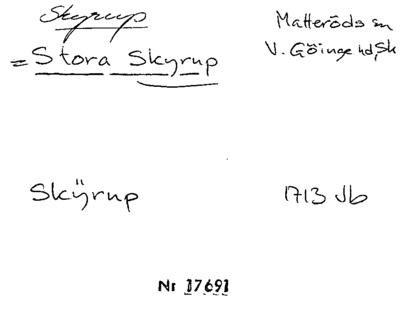 Skyrup
Matteröds sn
= Stora Skyrup
V. Göinge hd, Sk
Skÿrup
1713 Jb
Nr 17691